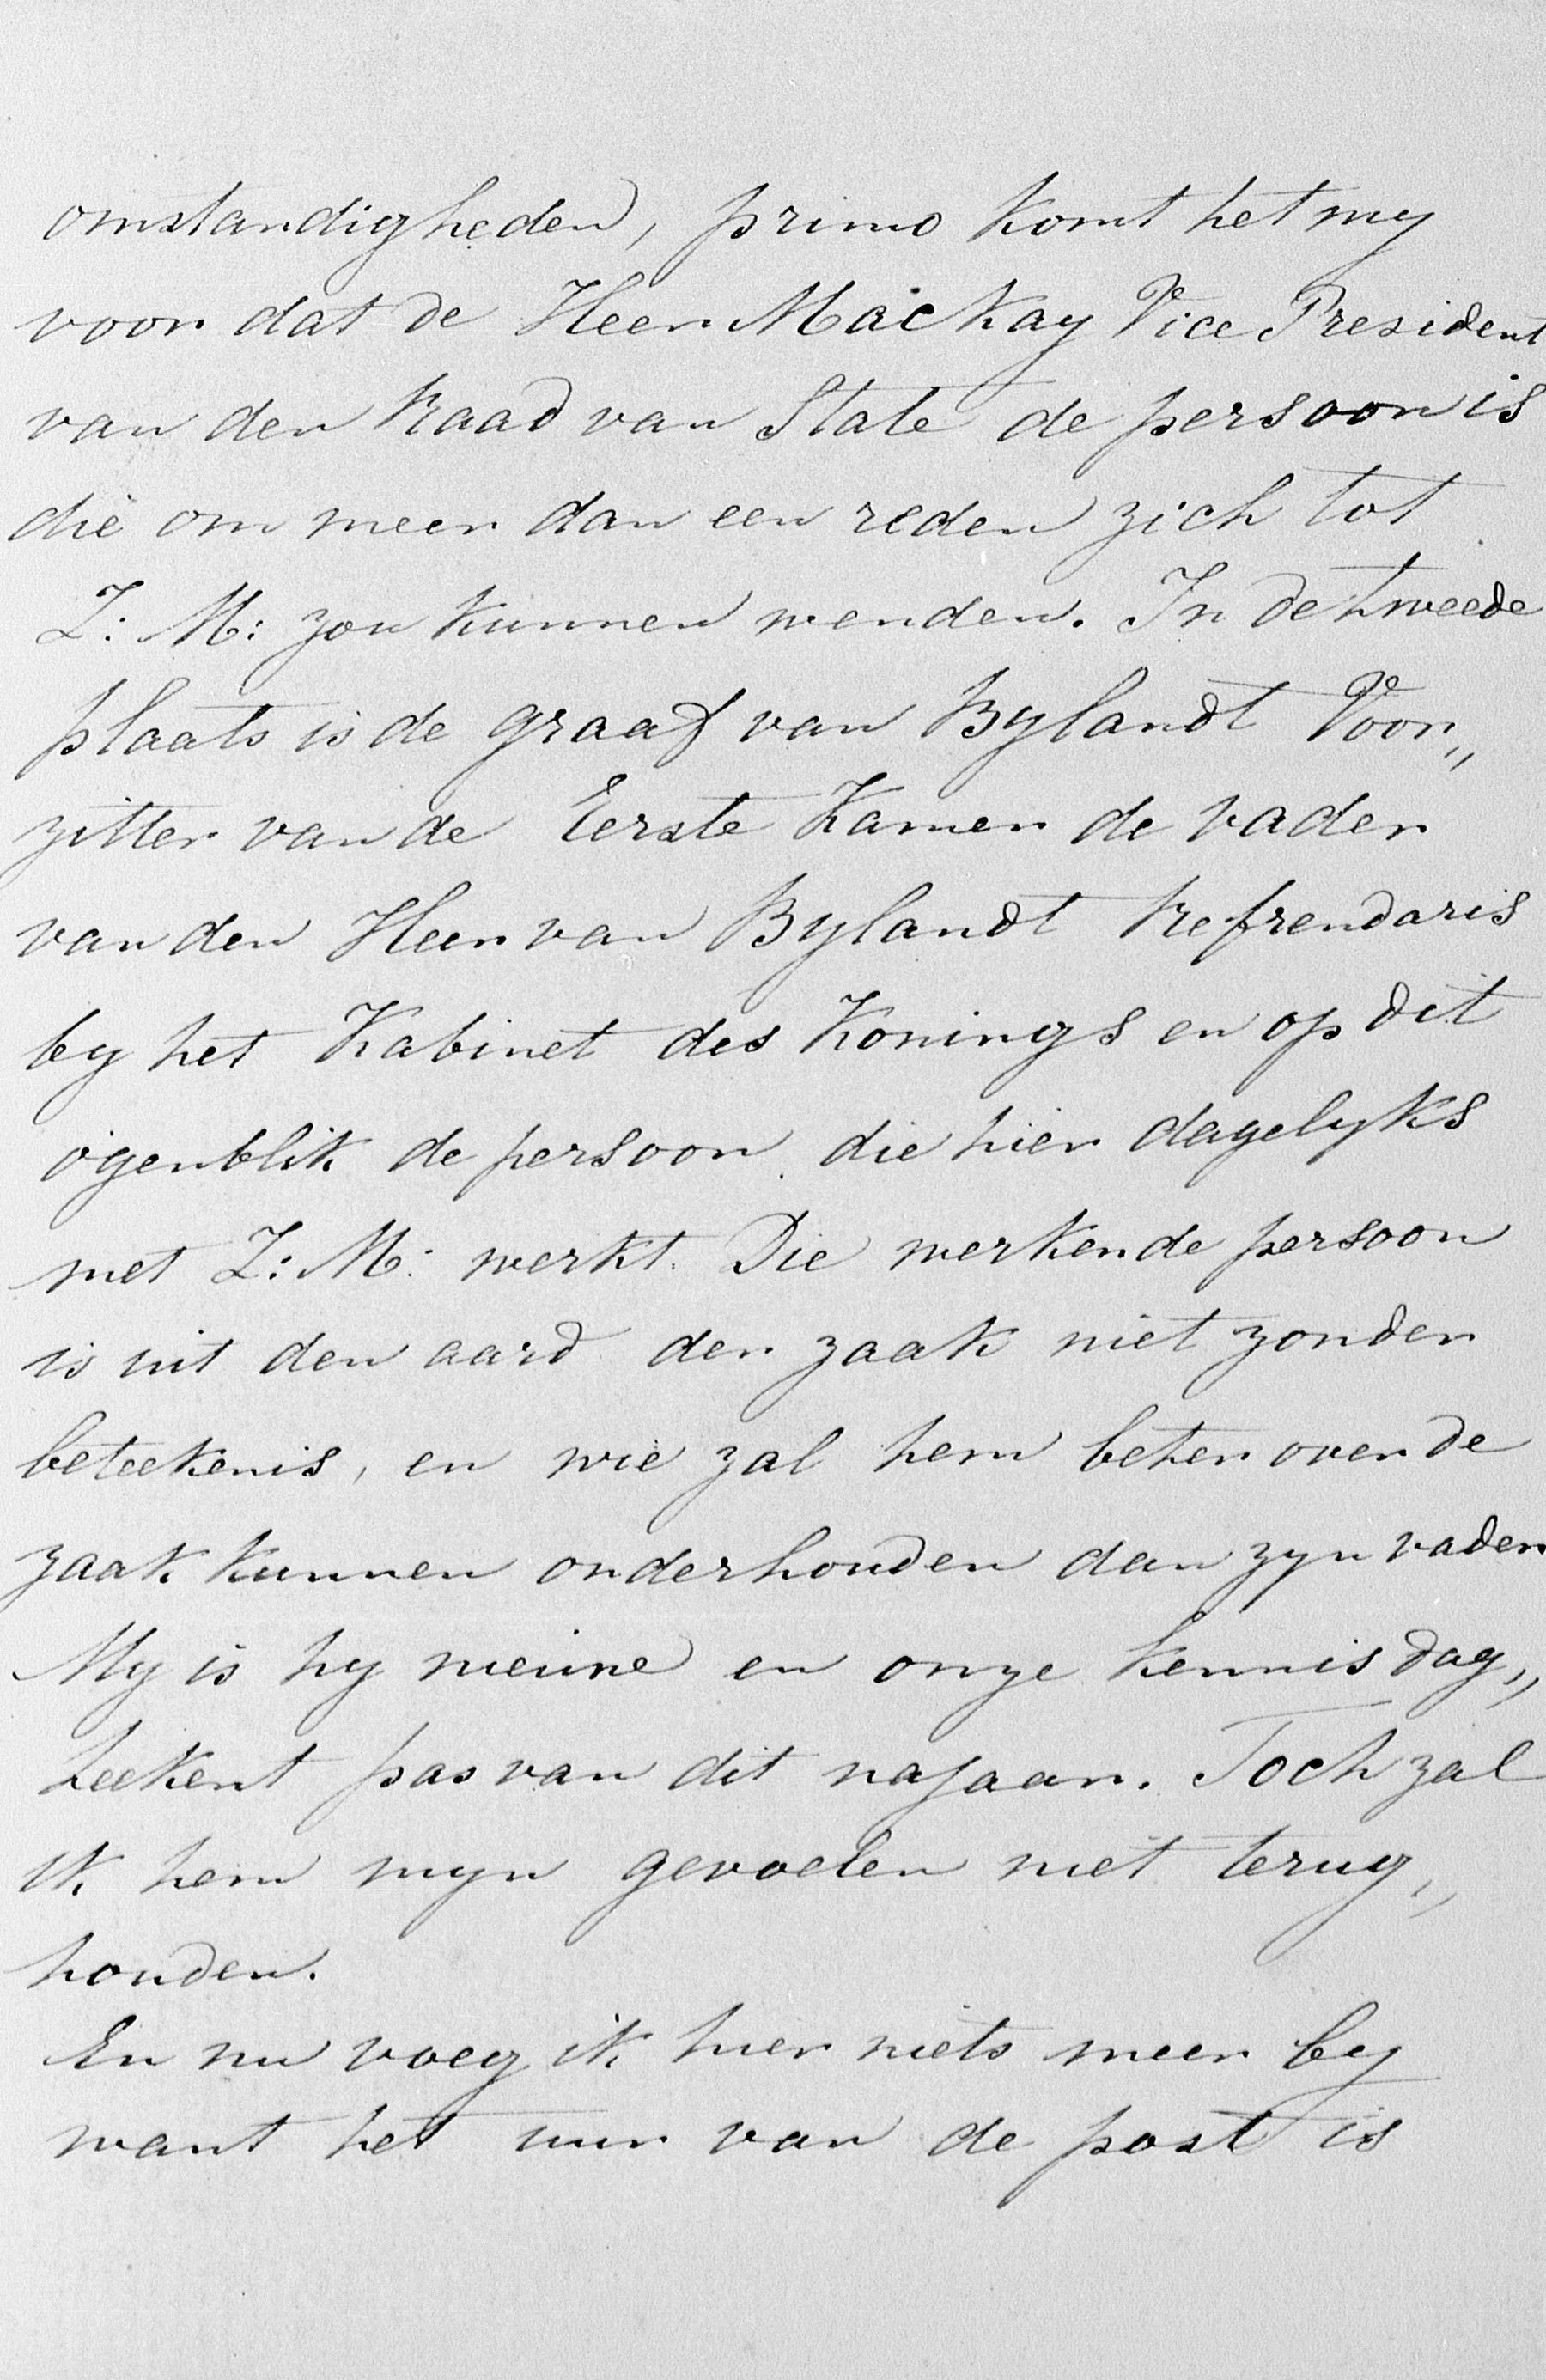 omstandigheden, primo komt het my
voor dat de Heer Mackay Vice President
van den Raad van State de persoon is
die om meer dan een reden zich tot
Z: M: zou kunnen wenden. In de tweede
plaats is de graaf van Bylandt Voor„
zitter van de Eerste Kamer de vader
van den Heer van Bylandt Refrendaris
by het Kabinet des Konings en op dit
ogenblik de persoon die hier dagelyks
met Z: M: werkt. Die werkende persoon
is uit den aard der zaak niet zonder
beteekenis, en wie zal hem beter over de
zaak kunnen onderhouden dan zyn vader
My is hy nieuwe en onze kennis dag„
teekent pas van dit najaar. Toch zal
ik hem myn gevoelen niet terug„
houden.
En nu voeg ik hier niets meer by
want het uur van de post is